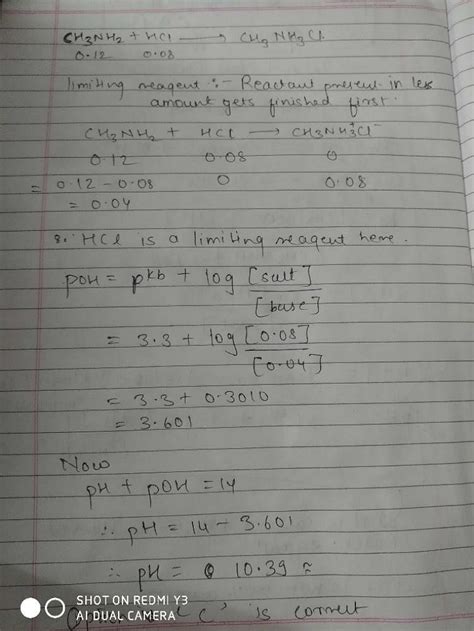 CH3NH2 + HCl → CH3NH3Cl
0.12 0.08
limiting reagent :- Reactant present in less
amount gets finished first.
CH3NH2 + HCl → CH3NH3+Cl-
0.12 0.08 0
= 0.12 - 0.08 0 0.08
= 0.04
HCl is a limiting reagent here.
pOH = pkb + log [salt]
[base]
= 3.3 + log [0.08]
[0.04]
= 3.3 + 0.3010
= 3.601
Now
pH + pOH = 14
∴ pH = 14 - 3.601
∴ pH = 10.39 ≈
'C' is correct
SHOT ON REDMI Y3
AI DUAL CAMERA